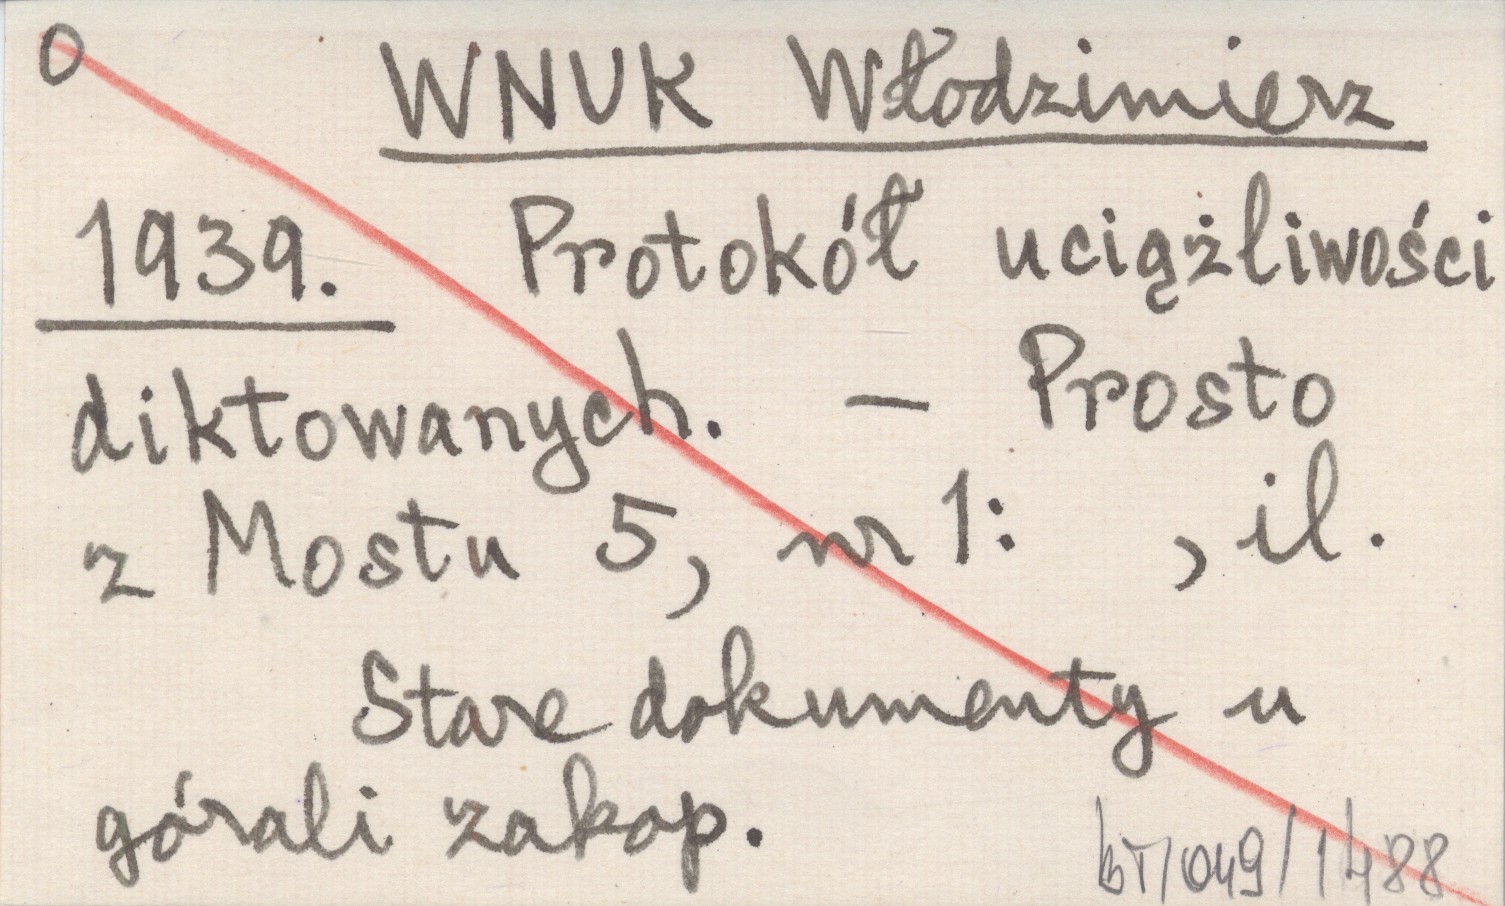 O WNUK Włodzimierz
1939. Protokół uciążliwości
diktowanych. – Prosto
z Mostu 5, nr 1: , il.
Stare dokumenty u
górali zakop.
BT/049/1488